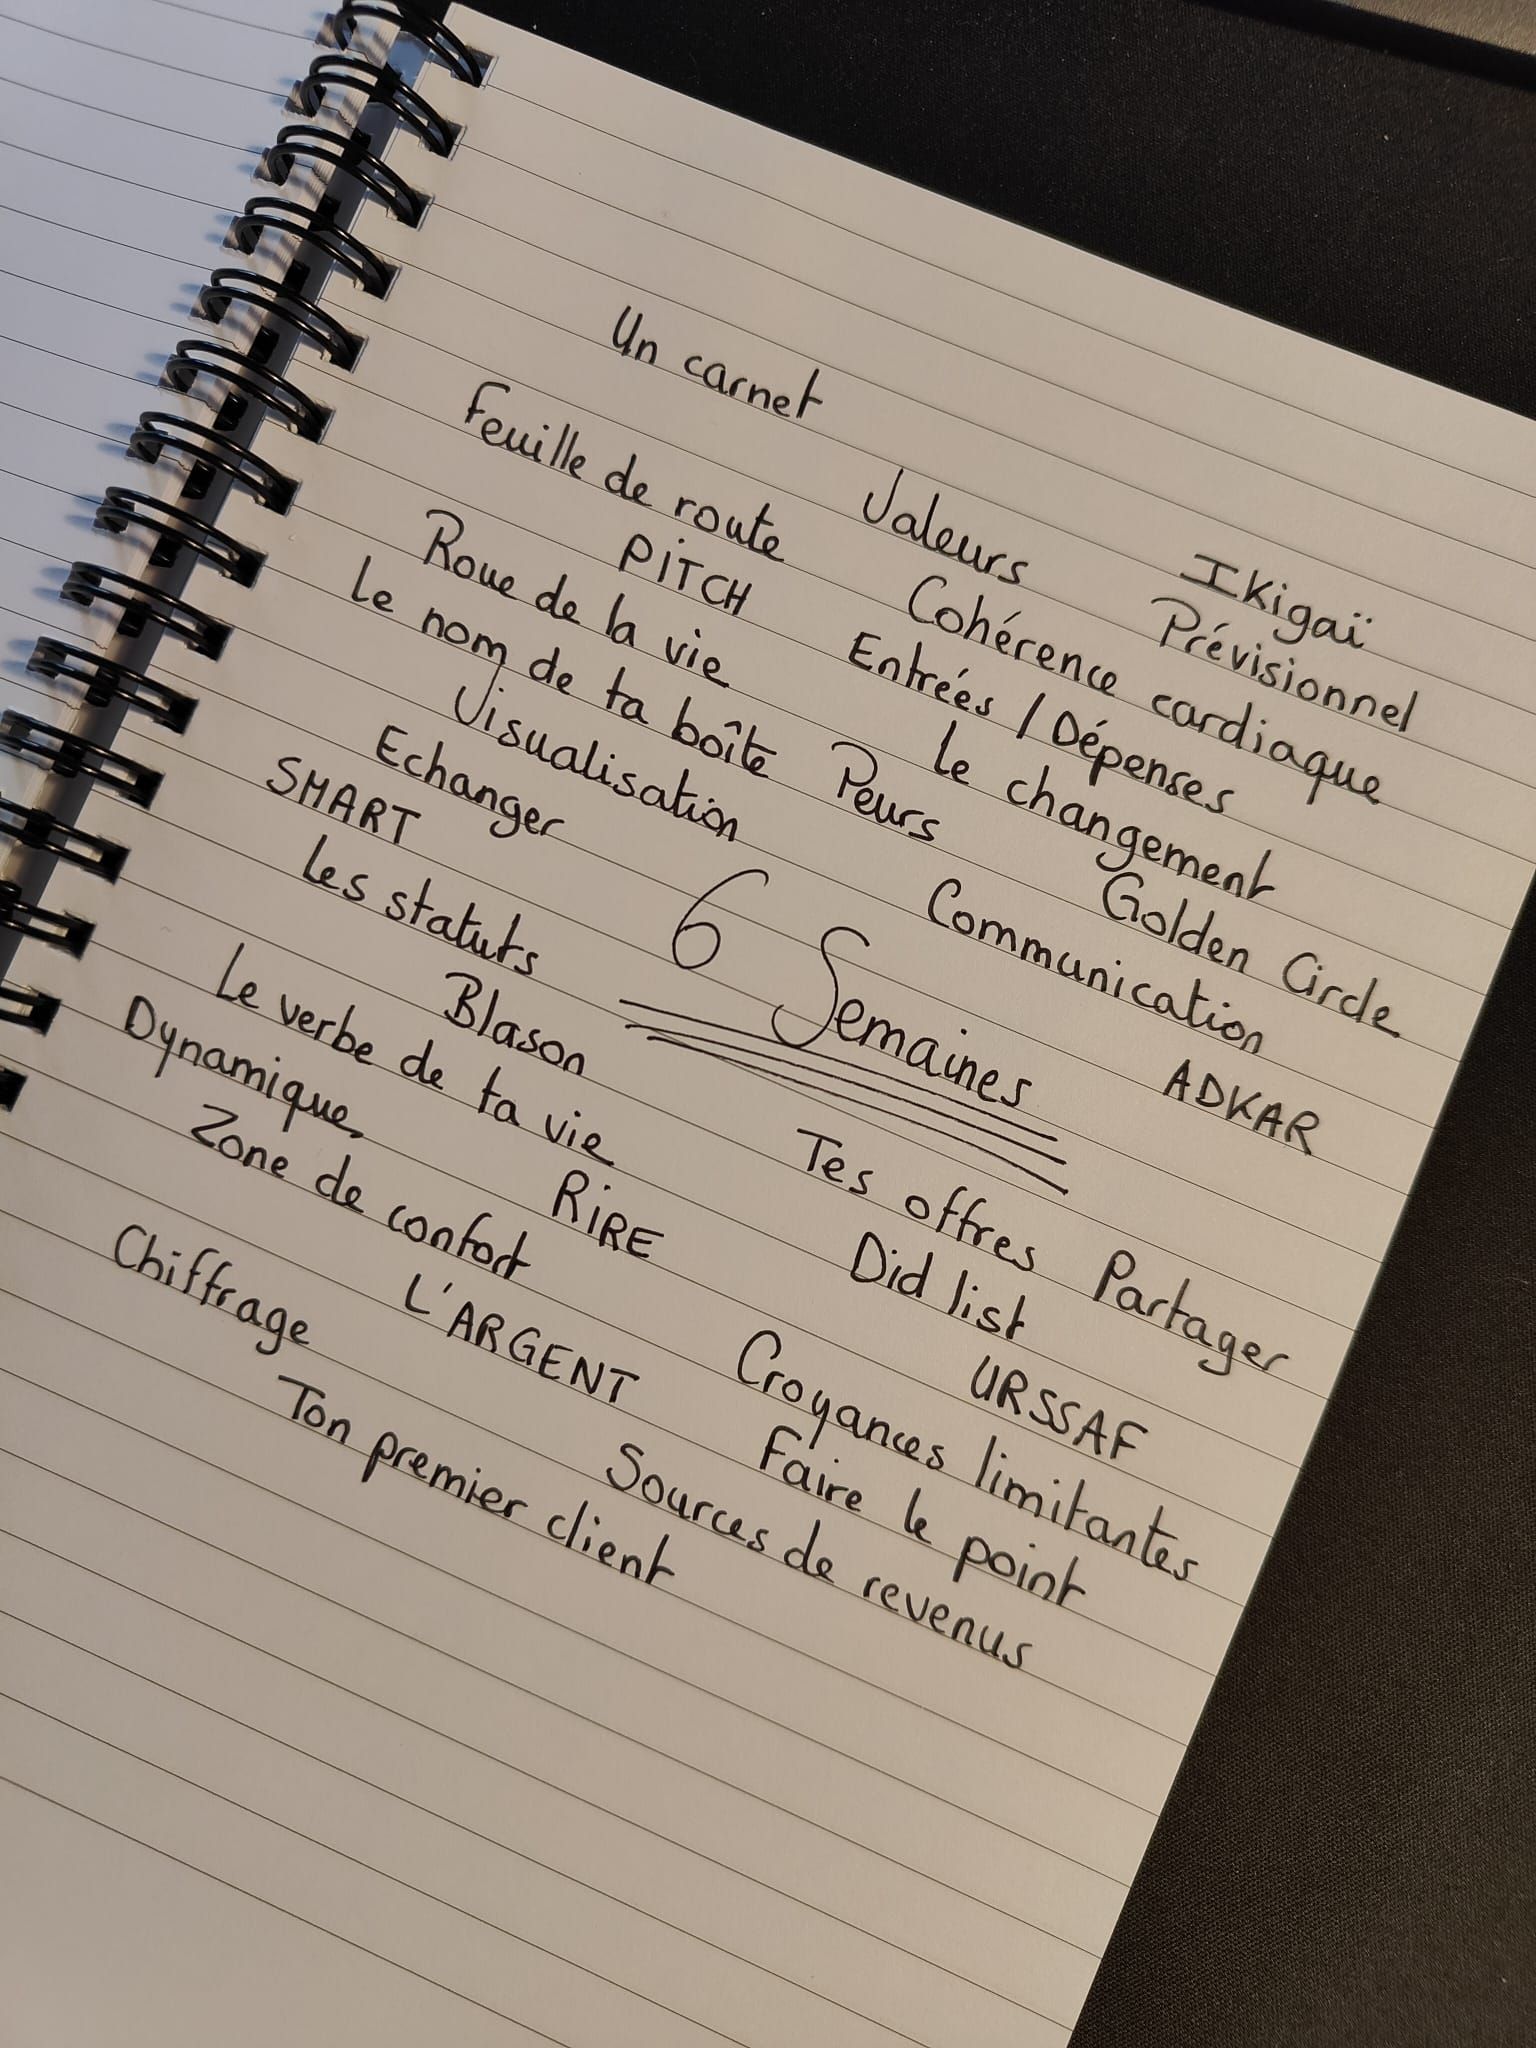 Un carnet
Valeurs
Ikigaï
Feuille de route
Cohérence cardiaque
Prévisionnel
PITCH
Entrées / Dépenses
Roue de la vie
Le changement
Le nom de ta boîte
Peurs
Golden Circle
Visualisation
Communication
Echanger
ADKAR
SMART
6 Semaines
Les statuts
Tes offres
Partager
Blason
Did list
Le verbe de ta vie
URSSAF
Dynamique
RIRE
Croyances limitantes
Zone de confort
Faire le point
L'ARGENT
Sources de revenus
Chiffrage
Ton premier client